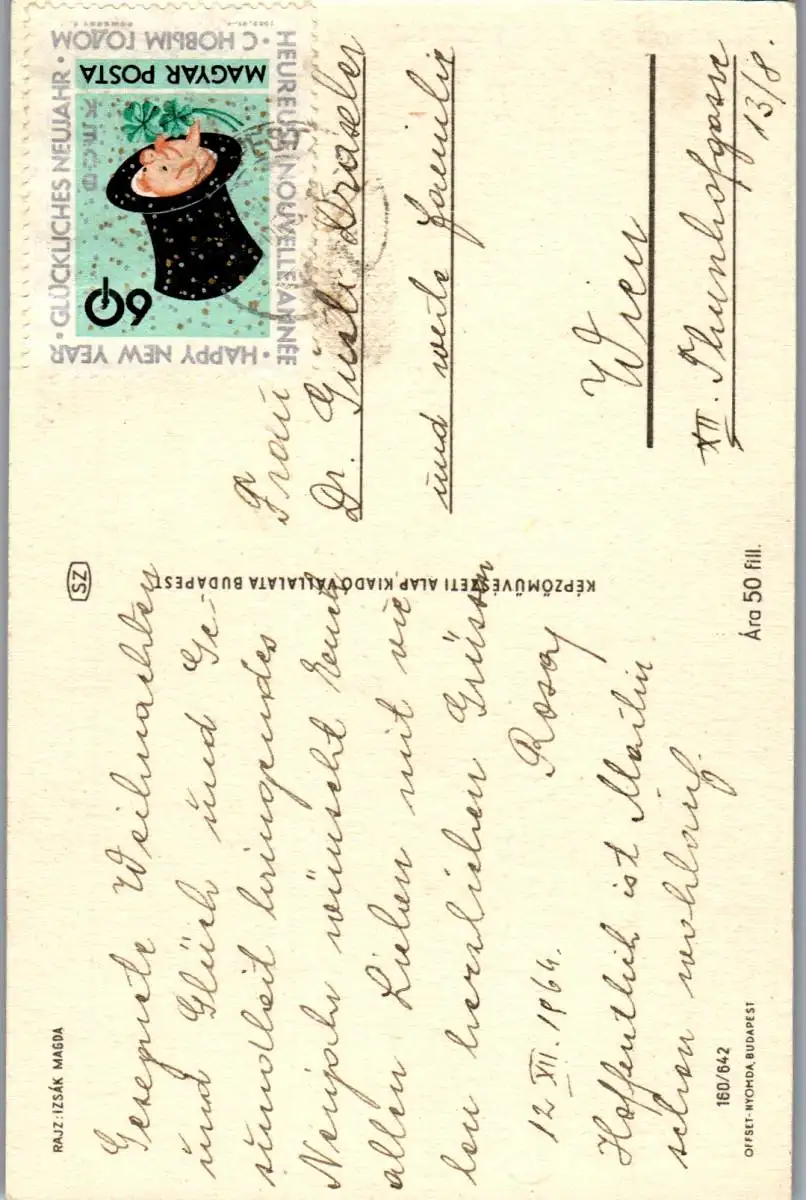 RAJZ: IZSÁK MAGDA
SZ
Gesegnete Weihnachten
und Glück und Ge-
sundheit bringendes
Neujahr wünscht Euch
allen Lieben mit vie
len herzlichen Grüssen
Rosa
12 XII. 1964.
Hoffentlich ist Martin
schon wohlauf.
160/642
OFFSET-NYOMDA, BUDAPEST
KÉPZŐMŰVÉSZETI ALAP KIADÓVÁLLALATA BUDAPEST
Ára 50 fill.
HAPPY NEW YEAR • GLÜCKLICHES NEUJAHR • С НОВЫМ ГОДОМ • HEUREUSE NOUVELLE ANNÉE •
MAGYAR POSTA
BUÉK
60
Frau
Dr. Gusti Draxler
und werte Familie
Wien
XII. Thunhofgasse
13/8.